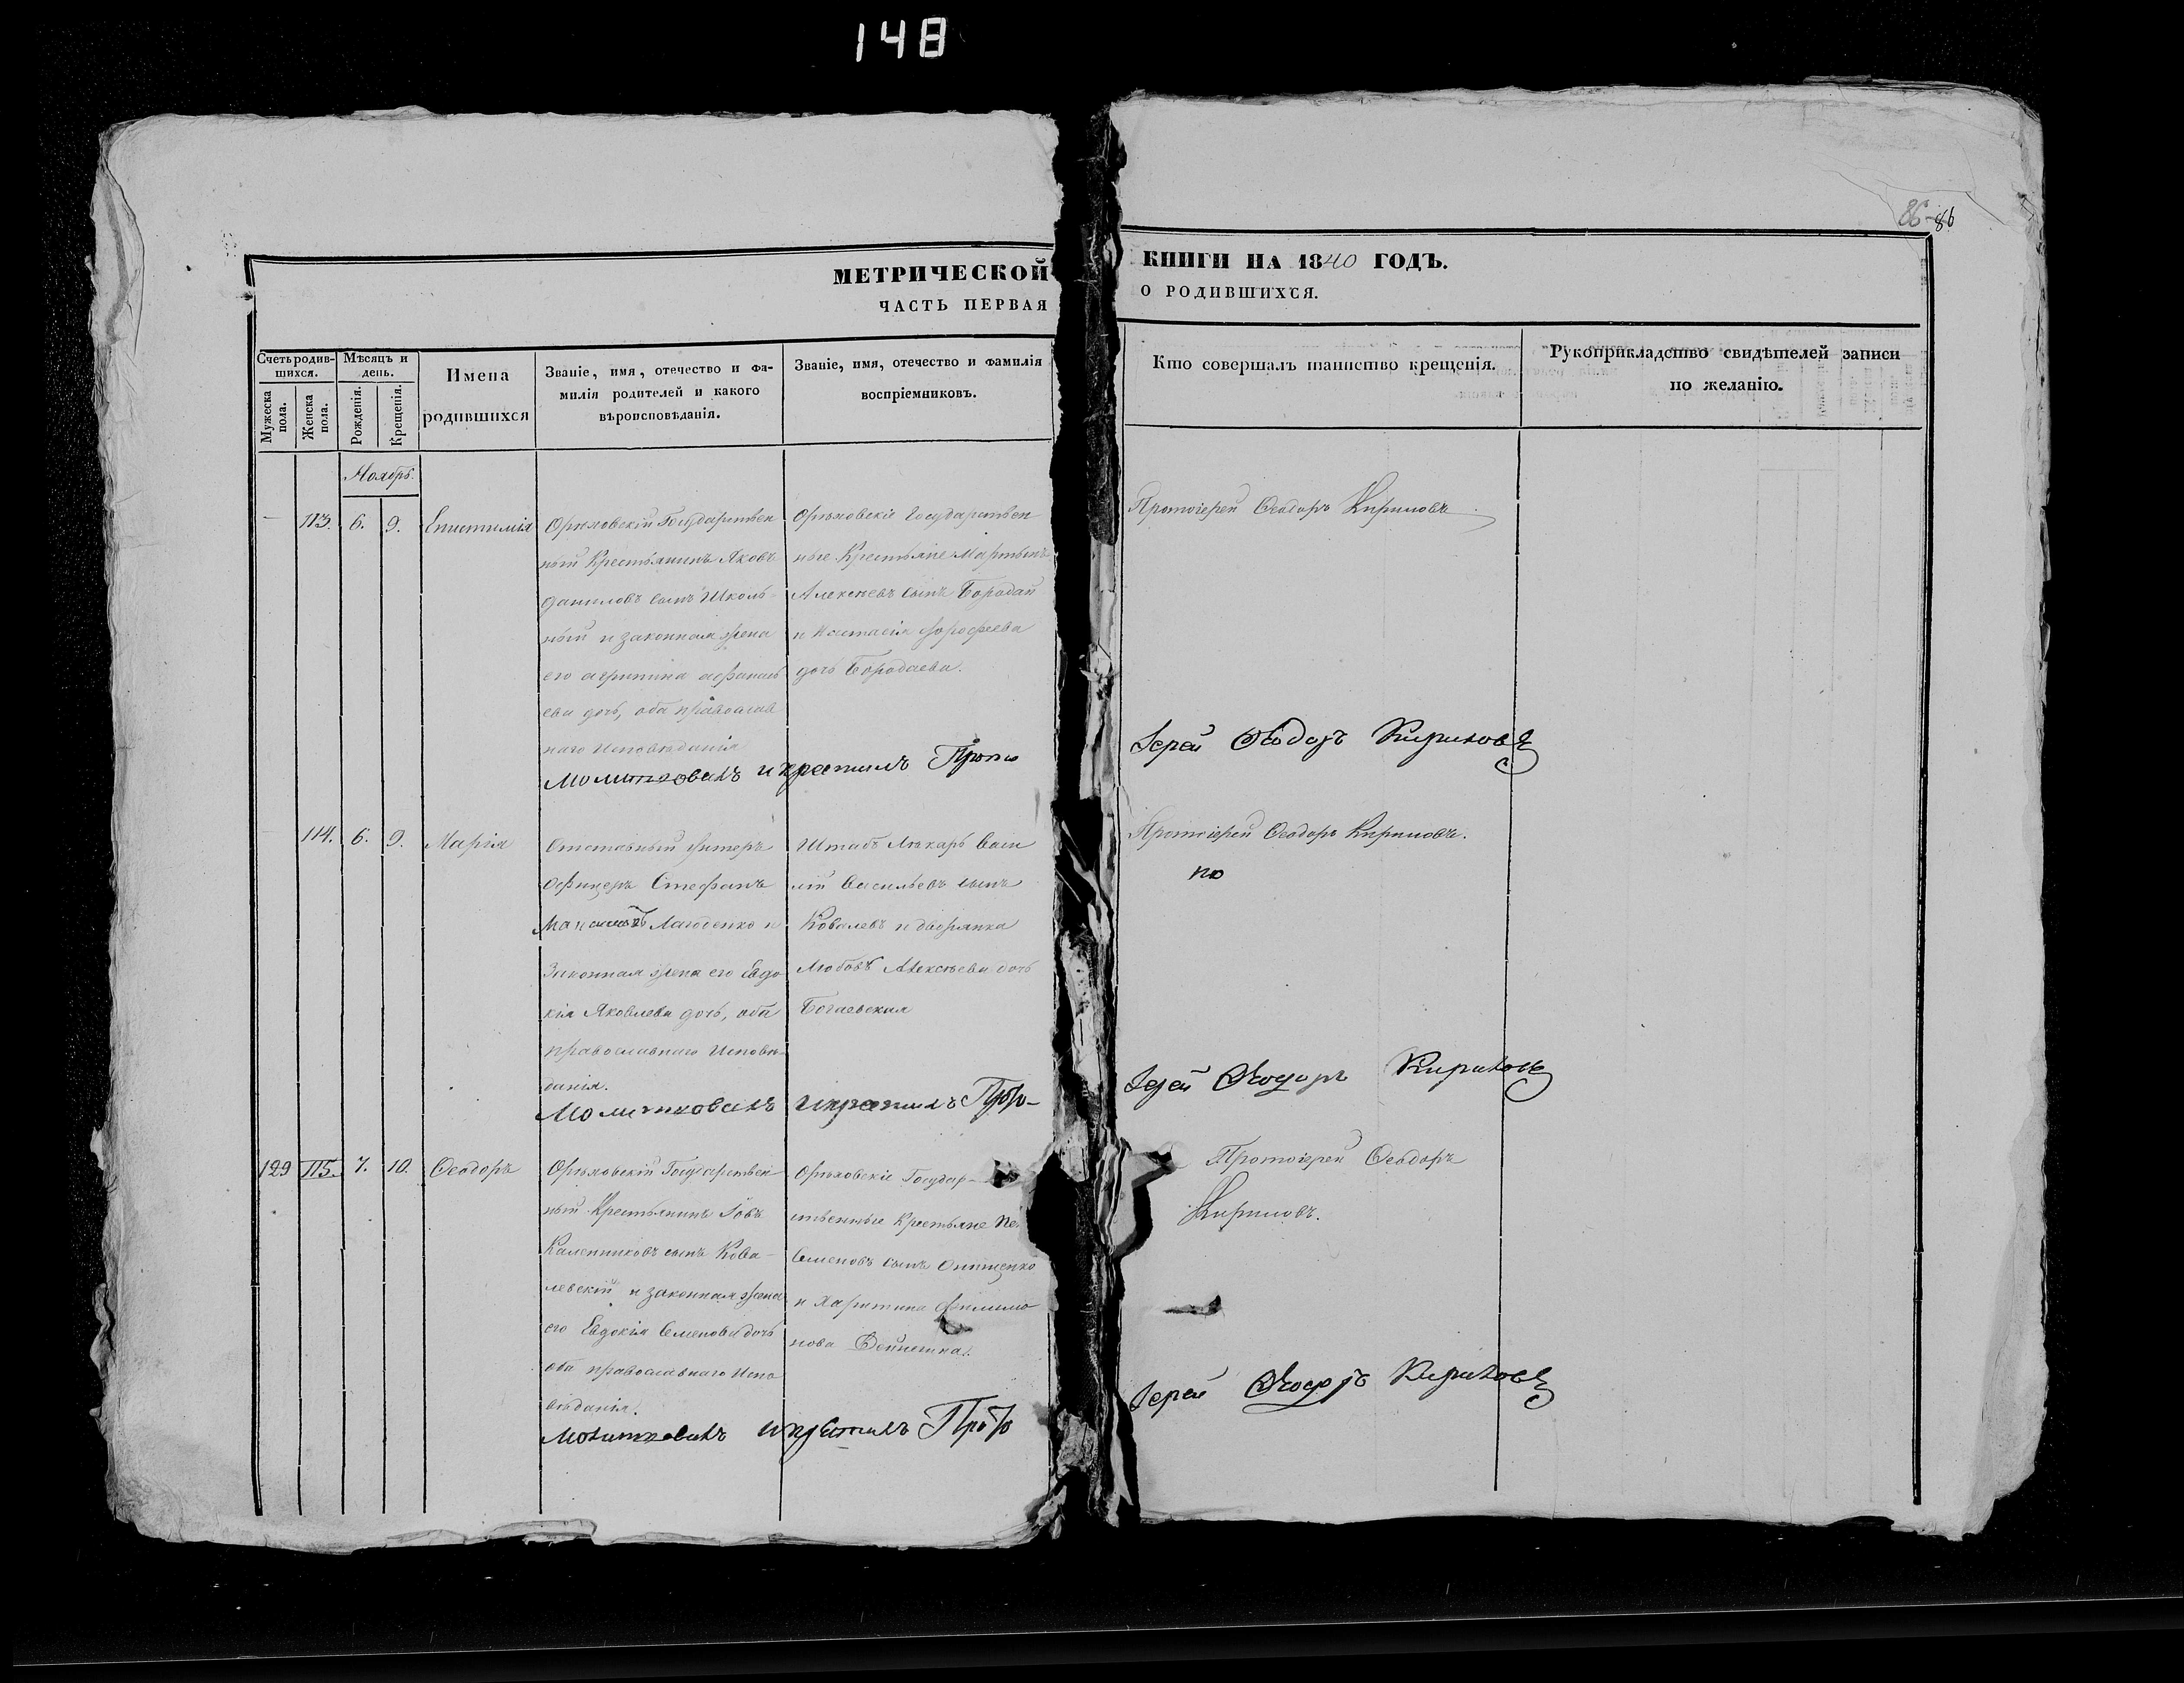 148
86 86
МЕТРИЧЕСКОЙ КНИГИ НА 1840 ГОДЪ.
ЧАСТЬ ПЕРВАЯ О РОДИВШИХСЯ.
Счетъ родив-
шихся.
Мужеска пола.
Женска пола.
Мѣсяцъ и
день.
Рожденія.
Крещенія.
Имена
родившихся
Званіе, имя, отечество и фа-
милія родителей и какого
вѣроисповѣданія.
Званіе, имя, отечество и фамилія
воспріемниковъ.
Кто совершалъ таинство крещенія.
Рукоприкладство свидѣтелей записи
по желанію.
Ноябрь.
113. 6. 9. Епистимія
Орѣховскій Государствен
ный Крестьянинъ Яковъ
Даниловъ сынъ Школь-
ный и законная жена
его Агрипина Афанась
ева дочь, оба православ
наго Исповѣданія
Орѣховскіе Государствен
ные Крестьяне Мартынъ
Алексѣевъ сынъ Бородай
и Настасія Дорофеева
дочь Бородаева.
Протоіерей Ѳеодоръ Кириловъ
Молитвовалъ и крестилъ Прото Іерей Ѳеодоръ Кириловъ
114. 6. 9. Марія
Отставный Унтеръ
Офицеръ Стефанъ
Лагоденко и
Законная жена его Евдо
кія Яковлева дочь, оба
православнаго Исповѣ-
данія.
Штабъ Лѣкарь Васи
лій Васильевъ сынъ
Ковалевъ и дворянка
Любовь Алексѣева дочь
Богаевская
Протоіерей Ѳеодоръ Кириловъ.
по
Молитвовалъ и крестилъ Прото- Іерей Ѳеодоръ Кириловъ
129 115. 7. 10. Ѳеодоръ
Орѣховскій Государствен
ный Крестьянинъ Іовъ
Калениковъ сынъ Кова-
левскій и законная жена
его Евдокія Семенова дочь
оба православнаго Испо
вѣданія.
Орѣховскіе Государ-
ственные Крестьяне
Семеновъ сынъ Онищенко
и Харитина Филимо
нова
Протоіерей Ѳеодоръ
Кириловъ.
Молитвовалъ и крестилъ Прото Іерей Ѳеодоръ Кириловъ